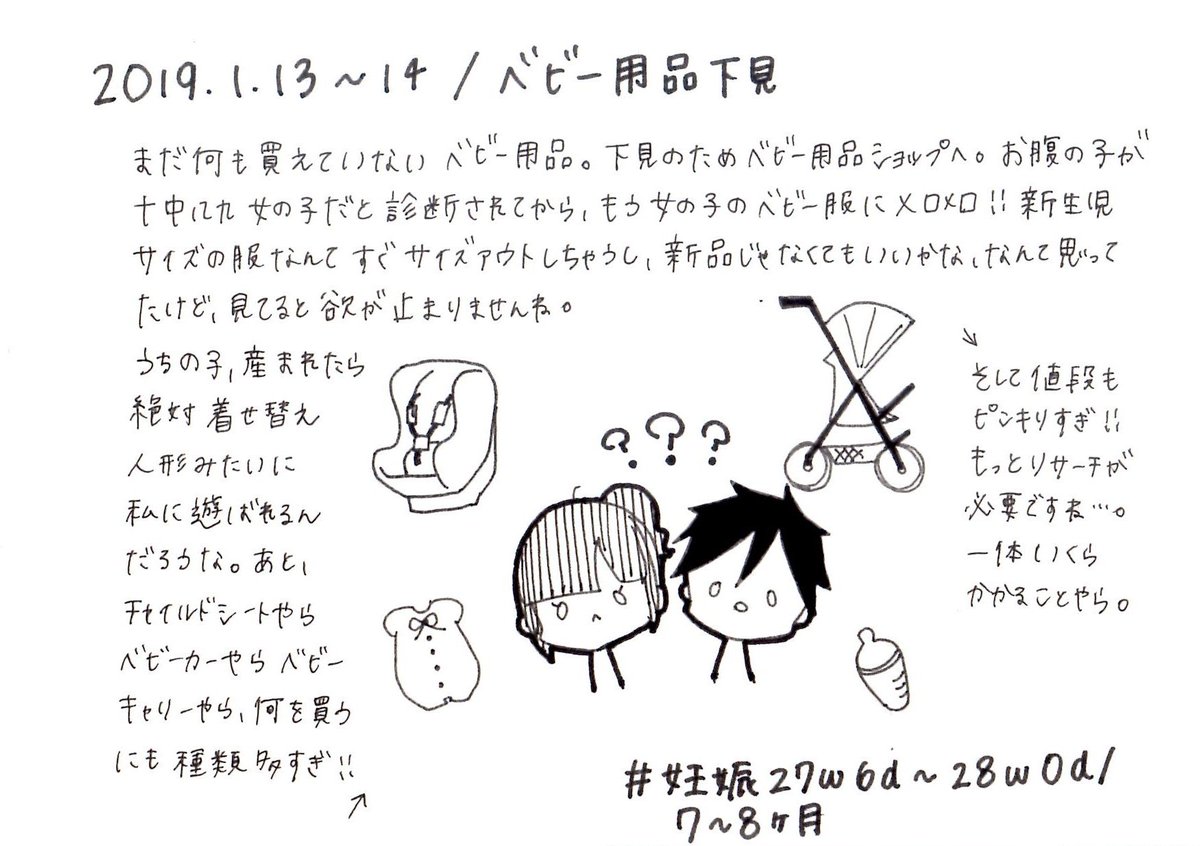 2019.1.13~14 / ベビー用品下見
まだ何も買えていないベビー用品。下見のためベビー用品ショップへ。お腹の子が
十中八九女の子だと診断されてから、もう女の子のベビー服にメロメロ!!新生児
サイズの服なんてすぐサイズアウトしちゃうし、新品じゃなくてもいいかな、なんて思って
たけど、見てると欲が止まりませんね。
うちの子、産まれたら
絶対着せ替え
人形みたいに
私に遊ばれるん
だろうな。あと、
チャイルドシートやら
ベビーカーやらベビー
キャリーやら、何を買う
にも種類多すぎ!!
↗
↘
そして値段も
ピンキリすぎ!!
もっとリサーチが
必要ですね…。
一体いくら
かかることやら。
???
#妊娠27w6d~28w0d/
7~8ヶ月